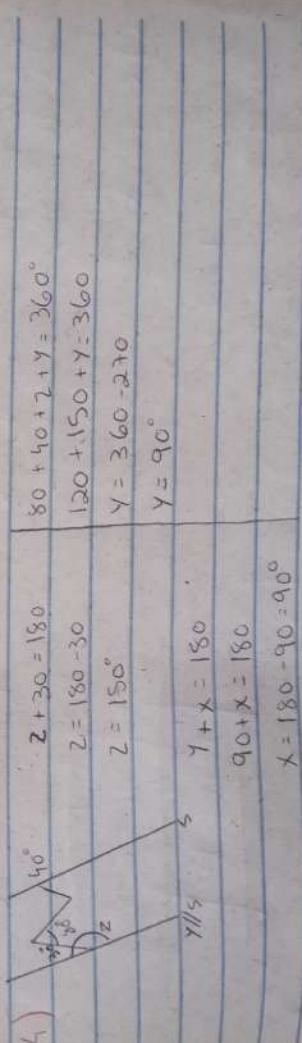 4)
40°
30
80
z
Y//S
S
2 + 30 = 180
z = 180 - 30
z = 150°
Y + x = 180
90 + x = 180
x = 180 - 90 = 90°
80 + 40 + 2 + Y = 360°
120 + 150 + Y = 360
Y = 360 - 270
Y = 90°